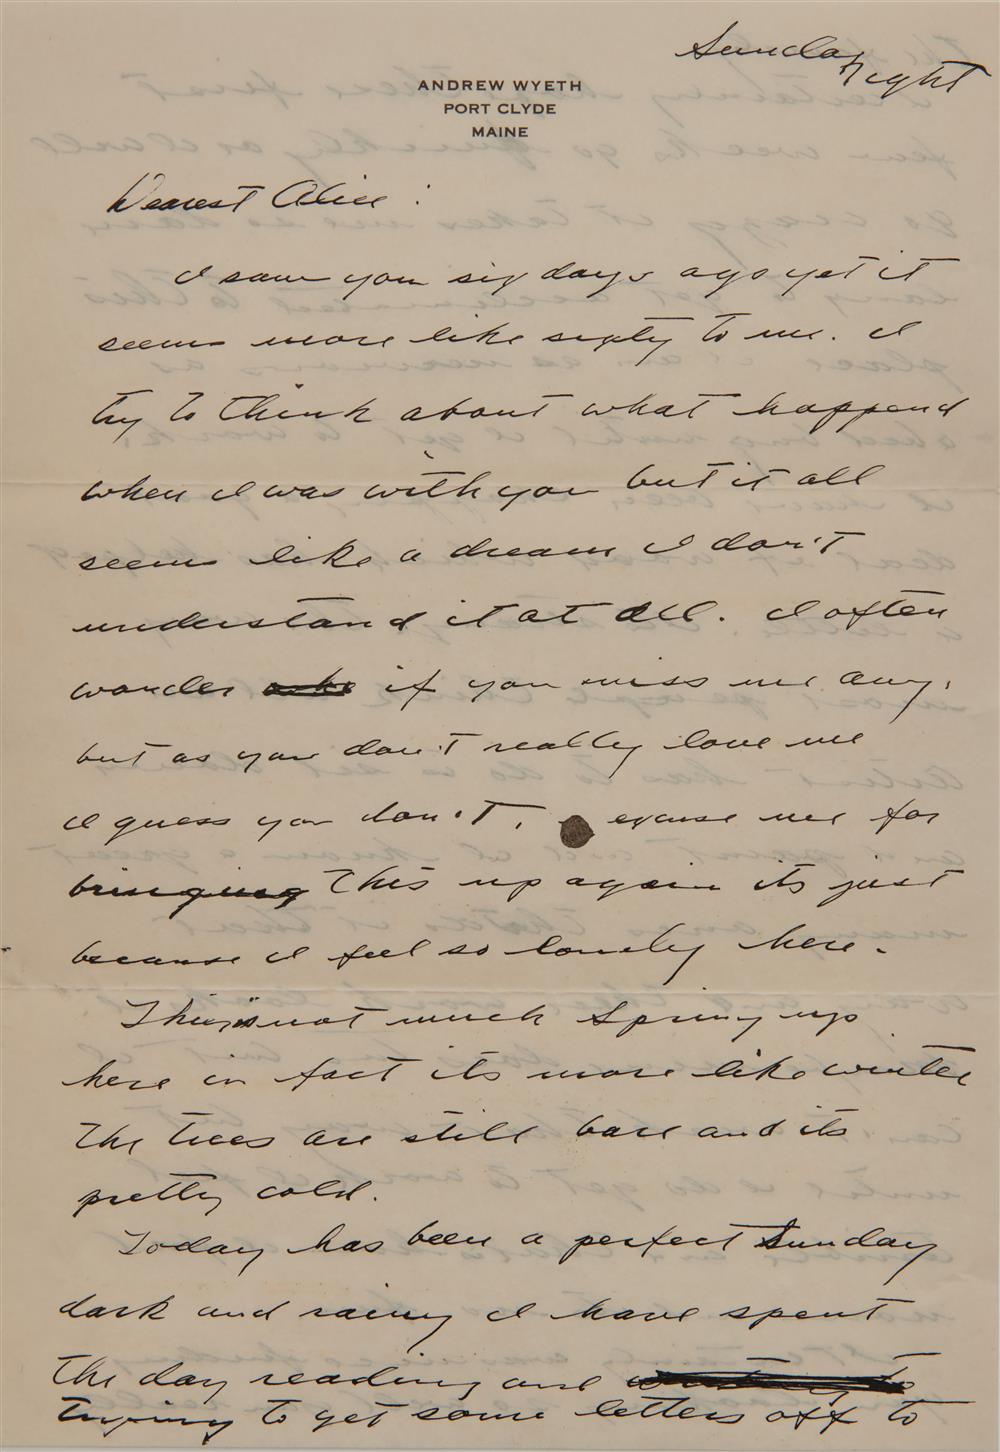 Sunday
night
ANDREW WYETH
PORT CLYDE
MAINE
Dearest Alice :
I saw you six days ago yet it
seems more like sixty to me. I
try to think about what happend
when I was with you but it all
seems like a dream I don't
understand it at all. I often
wonder if you miss me any.
but as you don't really love me
I guess you don't. excuse me for
bringing this up again its just
because I feel so lonely here.
This is not much Spring up
here in fact its more like winter
The trees are still bare and its
pretty cold.
Today has been a perfect Sunday
dark and rainy I have spent
the day reading and
trying to get some letters off to